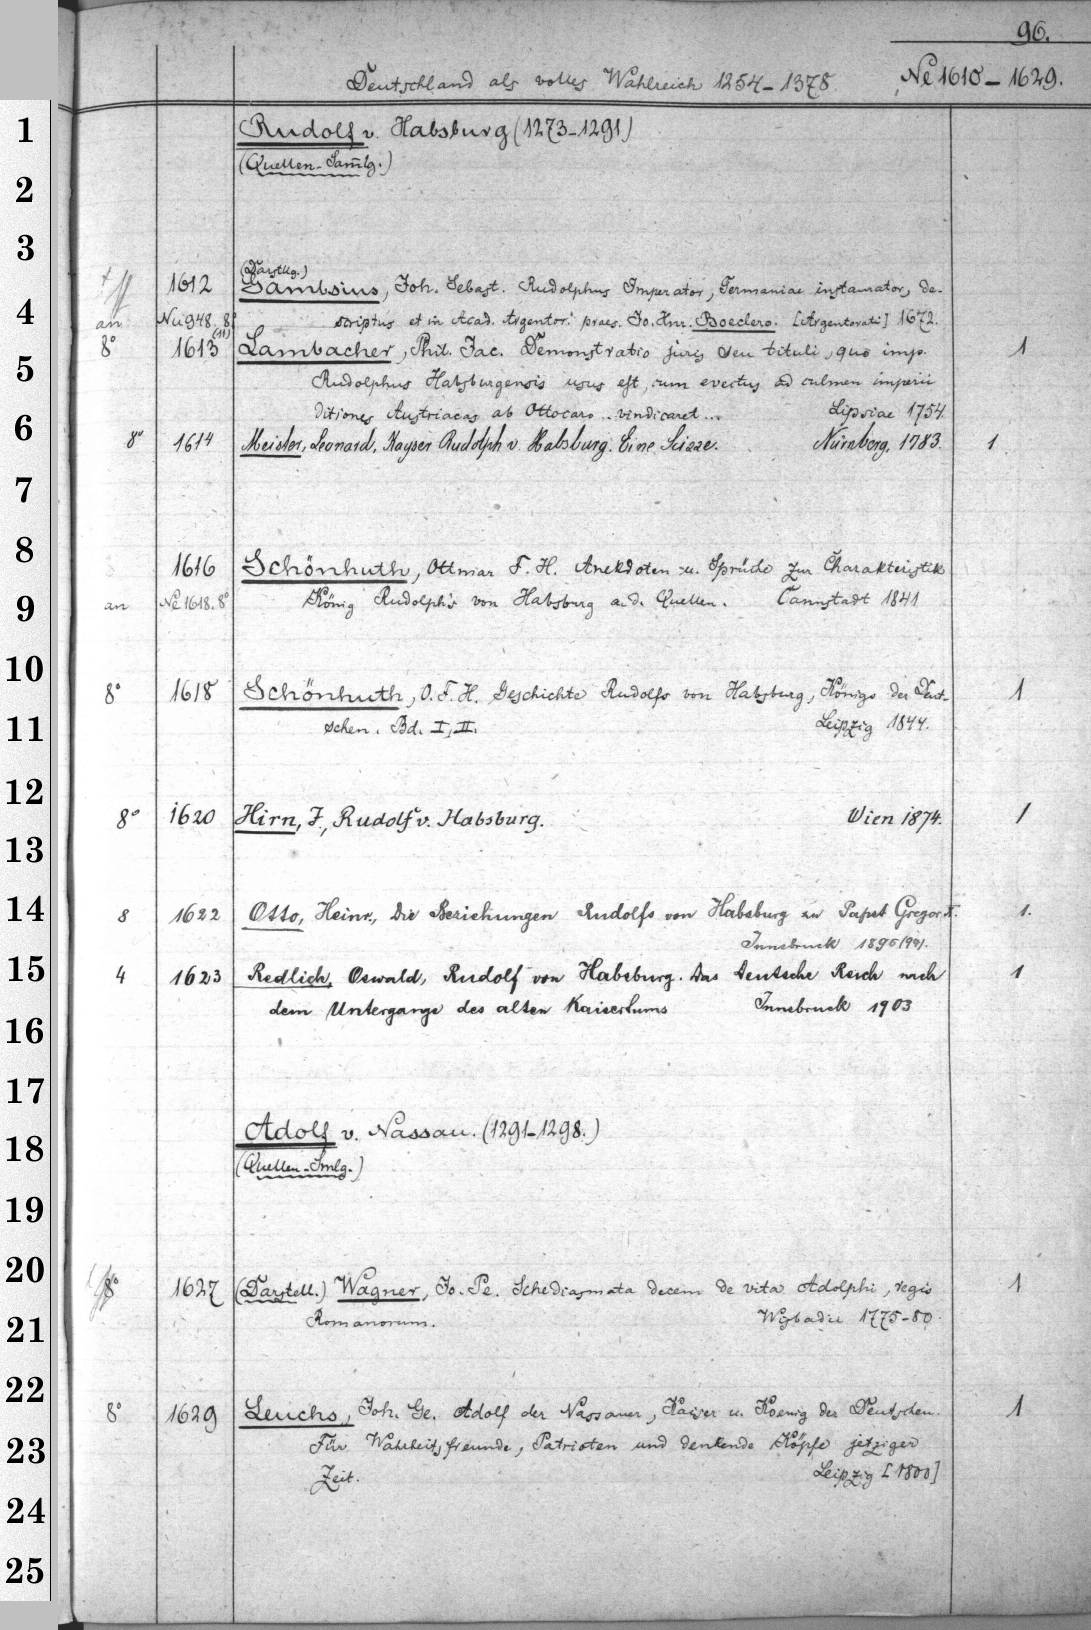 96.
Deutschland als volles Wahlreich 1254-1378. № 1610-1629.
1
Rudolf v. Habsburg (1273-1291)
(Quellen-Samlg.)
2
3
(Darstllg.)
1612 Sambsius, Joh. Sebast. Rudolphus Imperator, Germaniae instaurator, de-
4
an Nu 948. 8° (11) scriptus et in Acad. Argentor. praes. Jo. Hnr. Boeclero. [Argentorati] 1672.
8° 1613 Lambacher, Phil. Jac. Demonstratio juris seu tituli, quo imp. 1
5
Rudolphus Habsburgensis usus est, cum evectus ad culmen imperii
ditiones Austriacas ab Ottocaro .. vindicaret ... Lipsiae 1754
6
8° 1614 Meister, Leonard, Kayser Rudolph v. Habsburg. Eine Scizze. Nürnberg, 1783. 1.
7
8
1616 Schönhuth, Ottmar F. H. Anekdoten u. Sprüche zur Charakteristik
9
an № 1618. 8° König Rudolph's von Habsburg a. d. Quellen. Cannstadt 1841
10
8° 1618 Schönhuth, O. F. H. Geschichte Rudolfs von Habsburg, Königs der Deut- 1
11
schen. Bd. I, II. Leipzig 1844.
12
8° 1620 Hirn, J., Rudolf v. Habsburg. Wien 1874. 1
13
14
8 1622 Otto, Heinr., Die Beziehungen Rudolfs von Habsburg zu Papst Gregor X. 1.
Innsbruck 1895
15
4 1623 Redlich, Oswald, Rudolf von Habsburg. Das deutsche Reich nach 1
dem Untergange des alten Kaisertums Innsbruck 1903
16
17
18
Adolf v. Nassau. (1291-1298.)
(Quellen-Smlg.)
19
20
8° 1627 (Darstell.) Wagner, Jo. Pe. Schediasmata decem de vita Adolphi, regis 1
21
Romanorum. Wisbadii 1775-80.
22
8° 1629 Leuchs, Joh. Ge. Adolf der Nassauer, Kaiser u. Koenig der Deutschen. 1
23
Für Wahrheitsfreunde, Patrioten und denkende Köpfe jetziger
Zeit. Leipzig [1800]
24
25